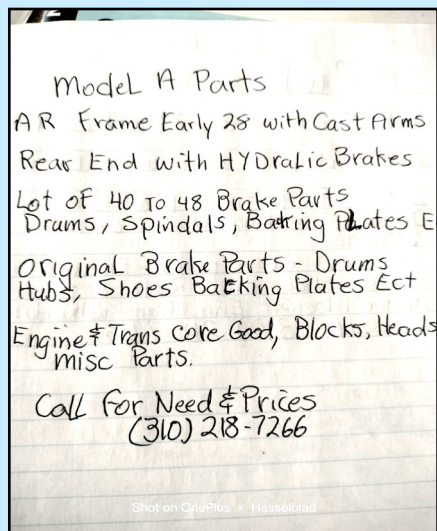 Model A Parts
AR Frame Early 28 with Cast Arms
Rear End with HYDraLic Brakes
Lot OF 40 TO 48 Brake Parts
Drums, Spindals, Backing Plates E
Original Brake Parts - Drums
Hubs, Shoes Backing Plates Ect
Engine & Trans Core Good, Blocks, Heads
Misc Parts.
Call For Need & Prices
(310) 218-7266
Shot on OnePlus × Hasselblad